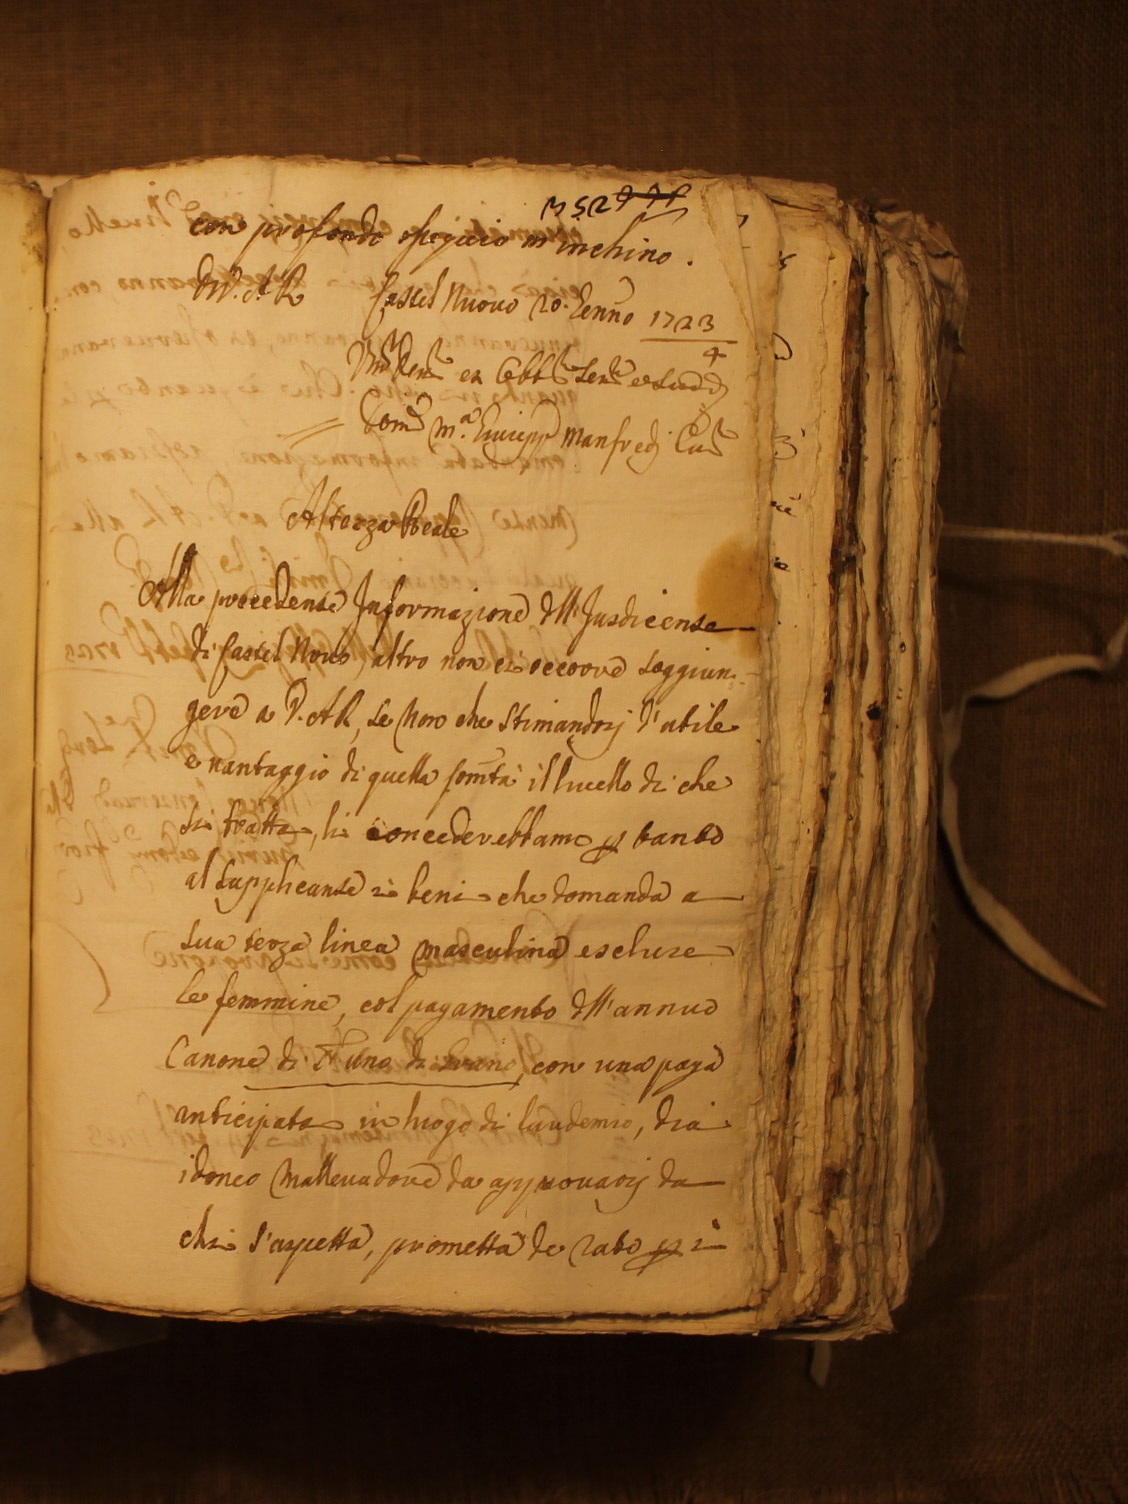 352
con profondo ossequio m'inchino.
D.V.A.R. Castel Nuovo 20. Genno 1723/4
Um.
Dom. M.a Giusepp. Manfredi
Altezza Reale
Alla precedente Informazione dell'Jusdicente
di Castel Novo, altro non ci occorre soggiun-
gere a V.A.R., se non che stimandosi d'utile
e vantaggio di quella Com.tà il livello di che
si tratta, li concederebbamo p tanto
al supplicante i beni che domanda a
sua terza linea masculina escluse
le femmine, col pagamento dell'annuo
Canone di di Grano, con una paga
anticipata in luogo di laudemio, dia
idoneo Mallevadore da approvarsi da
chi s'aspetta, prometta de rato p i